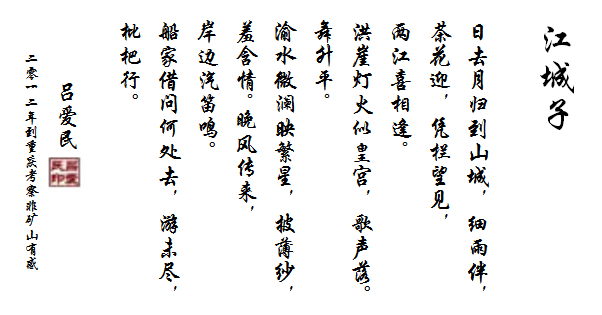 江城子
日去月归到山城，细雨伴，
茶花迎，凭栏望见，
两江喜相逢。
洪崖灯火似皇宫，歌声落。
舞升平。
渝水微澜映繁星，披薄纱，
羞含情。晚风传来，
岸边汽笛鸣。
船家借问何处去，游未尽，
枇杷行。
吕爱民
吕爱民印
二零一二年到重庆考察非矿山有感